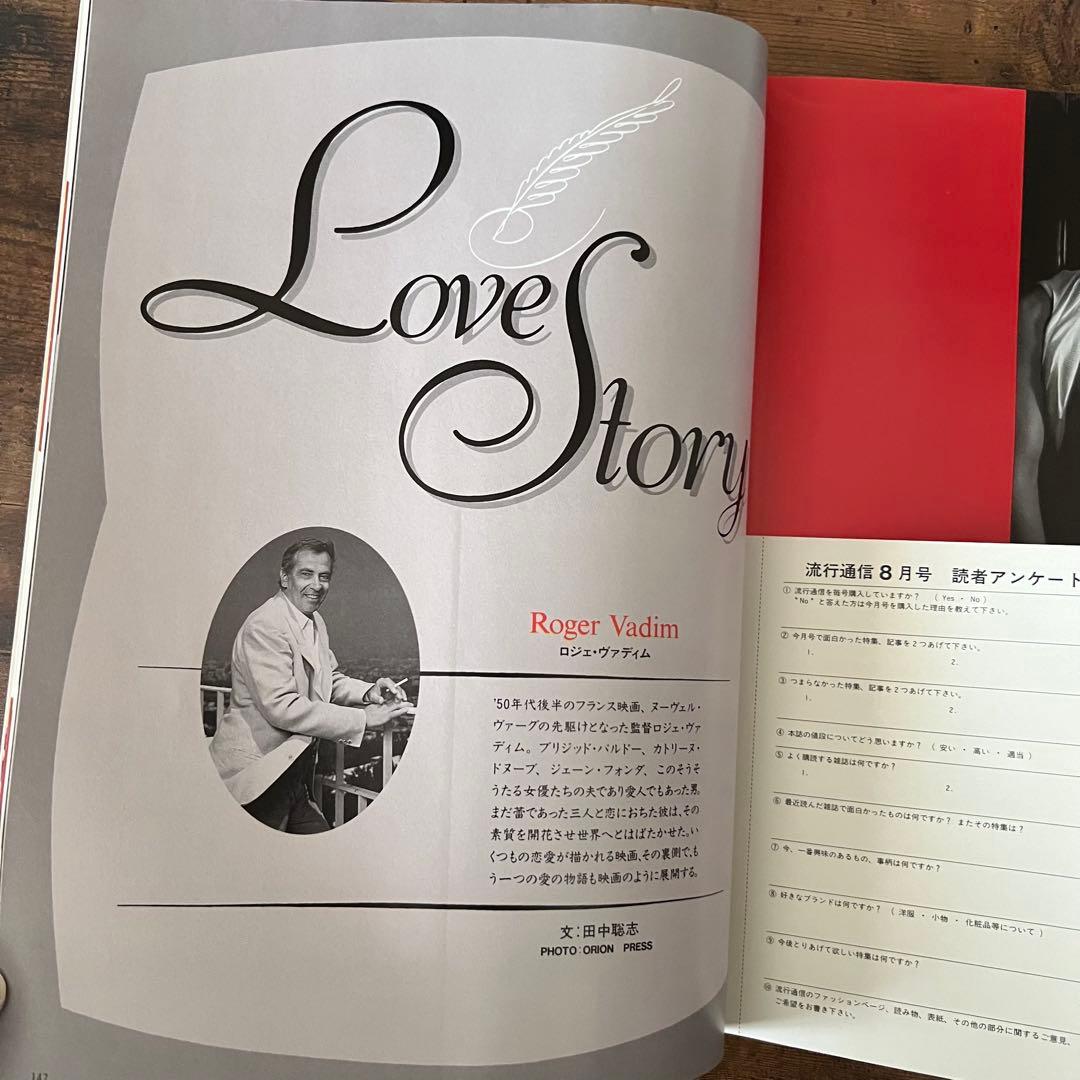 Love
Story
Roger Vadim
ロジェ・ヴァディム
'50年代後半のフランス映画、ヌーヴェル・
ヴァーグの先駆けとなった監督ロジェ・ヴァ
ディム。ブリジッド・バルドー、カトリーヌ・
ドヌーブ、ジェーン・フォンダ、このそうそ
うたる女優たちの夫であり愛人でもあった男。
まだ蕾であった三人と恋におちた彼は、その
素質を開花させ世界へとはばたかせた。い
くつもの恋愛が描かれる映画、その裏側で、も
う一つの愛の物語も映画のように展開する。
文：田中聡志
PHOTO：ORION PRESS
142
流行通信8月号 読者アンケート
① 流行通信を毎号購入していますか？ （Yes ・ No）
"No"と答えた方は今月号を購入した理由を教えて下さい。
② 今月号で面白かった特集、記事を2つあげて下さい。
1.
2.
③ つまらなかった特集、記事を2つあげて下さい。
1.
2.
④ 本誌の値段についてどう思いますか？ （安い ・ 高い ・ 適当）
⑤ よく購読する雑誌は何ですか？
1.
2.
⑥ 最近読んだ雑誌で面白かったものは何ですか？ またその特集は？
⑦ 今、一番興味のあるもの、事柄は何ですか？
⑧ 好きなブランドは何ですか？ （洋服 ・ 小物 ・ 化粧品等について）
⑨ 今後とりあげて欲しい特集は何ですか？
⑩ 流行通信のファッションページ、読み物、表紙、その他の部分に関するご意見、
ご希望をお書き下さい。